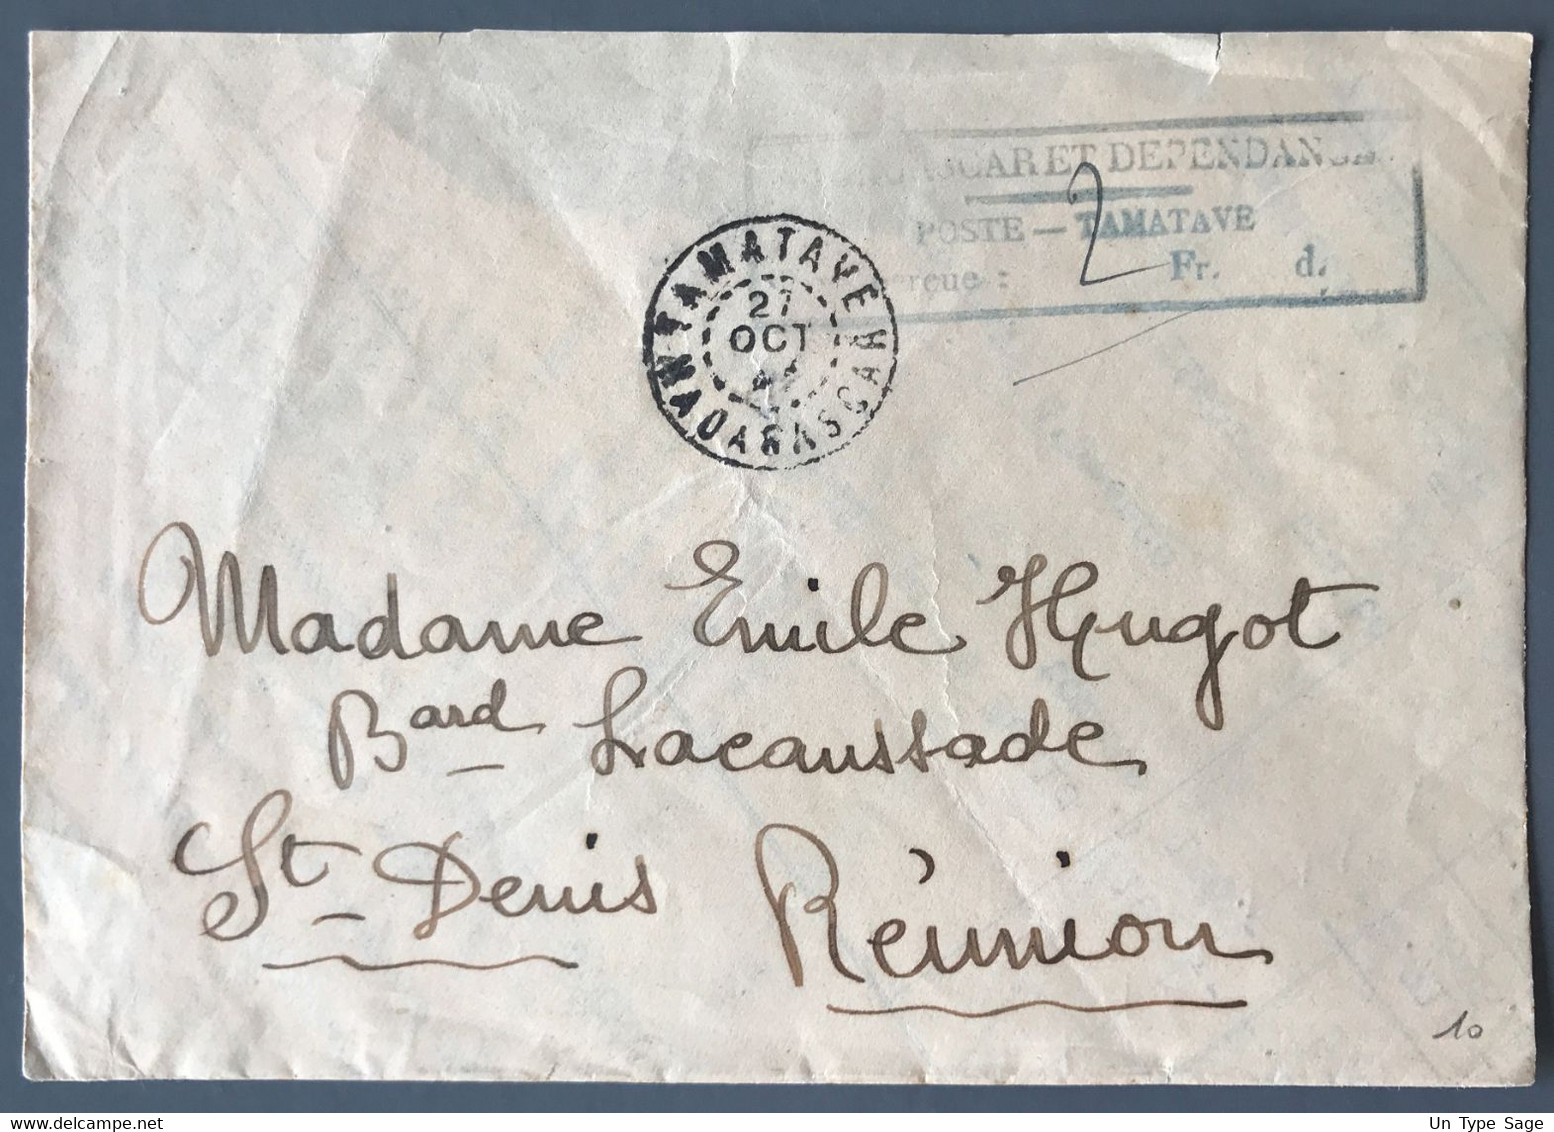 ET DEPENDANCE
POSTE — TAMATAVE
2 Fr.
TAMATAVE
27
OCT
MADAGASCAR
Madame Emile Hugot
Bard Lacaussade
St-Denis Réunion
10
Un Type Sage